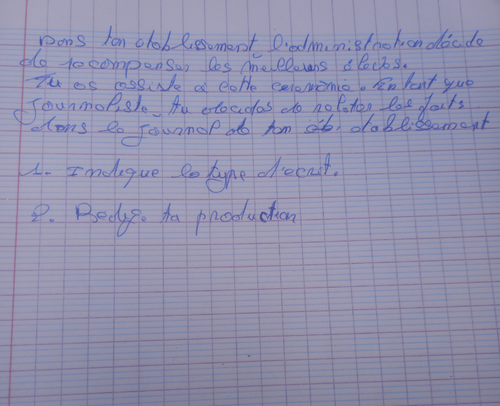 Dans ton établissement l'administration décide
de recompenser les meilleurs élèves.
Tu as assisté à cette ceremonie. En tant que
Journaliste, tu décides de relater les faits
dans le Journal de ton établissement
1. Indique le type d'ecrit.
2. Redige ta production